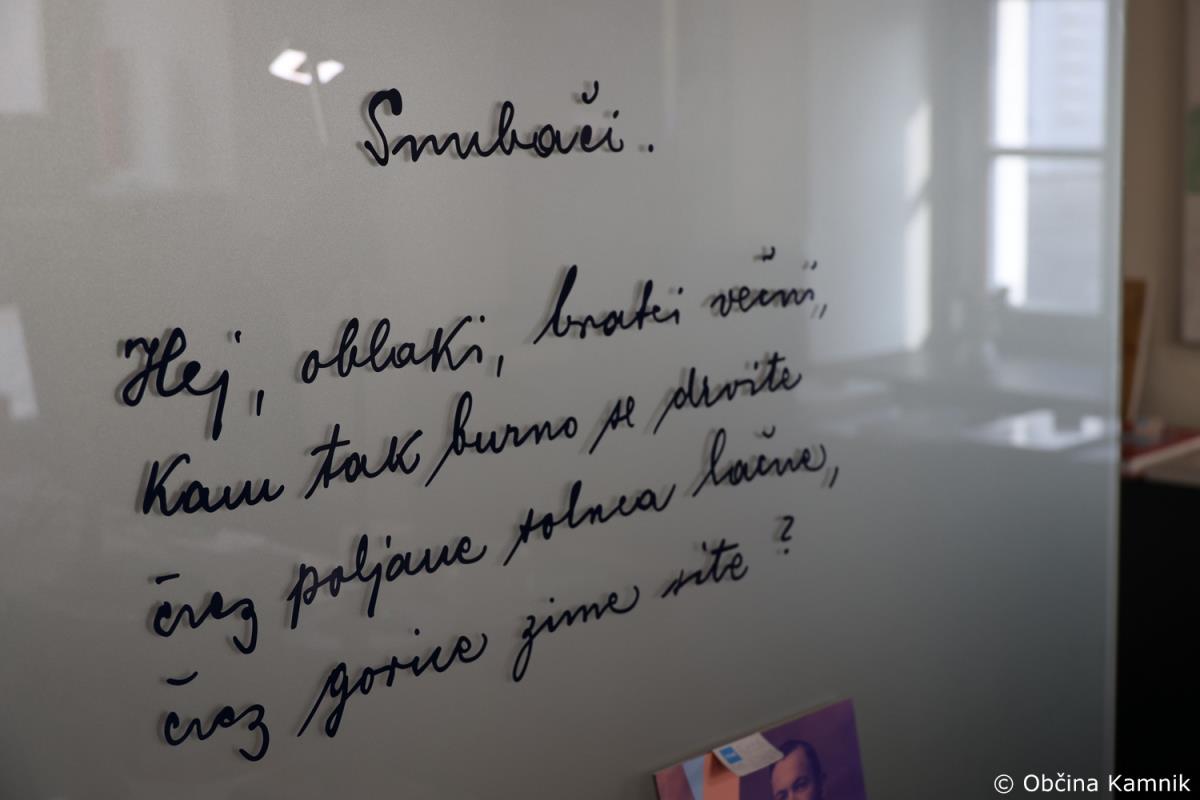 Snubači.
Hej, oblaki, bratci večni,
Kam tak burno se drvite
črez poljane solnca lačne,
črez gorice zime site?
© Občina Kamnik